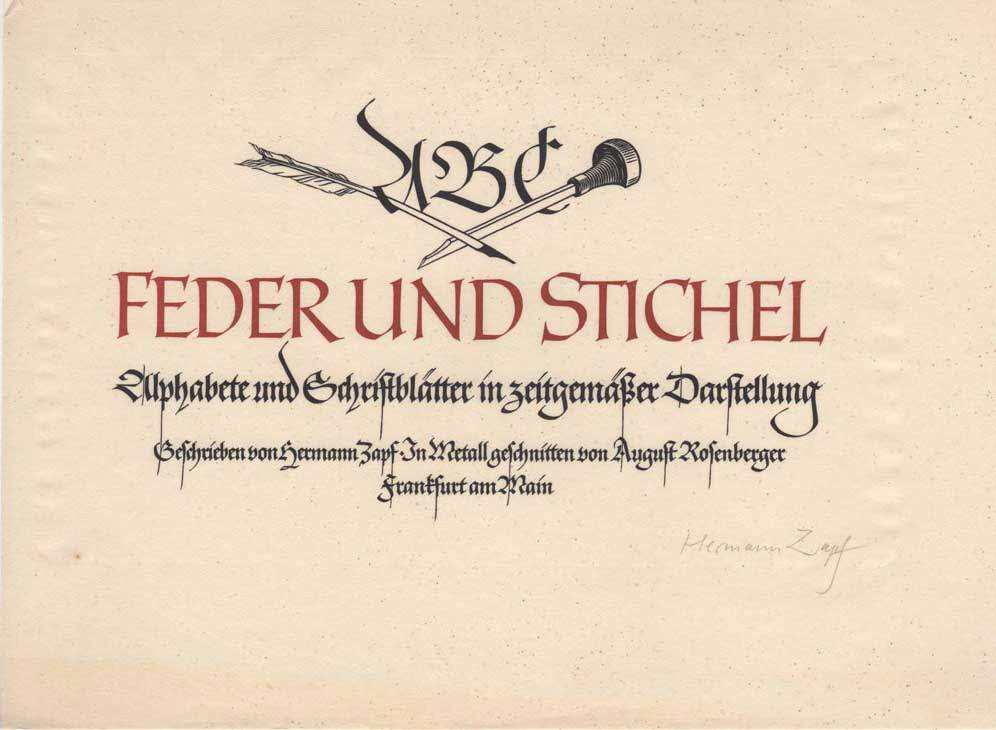 ABC
FEDER UND STICHEL
Alphabete und Schriftblätter in zeitgemäßer Darstellung
Geschrieben von Hermann Zapf · In Metall geschnitten von August Rosenberger
Frankfurt am Main
Hermann Zapf